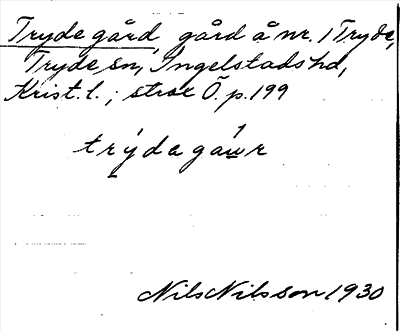 Tryde gård, gård å nr. 1 Tryde,
Tryde sn, Ingelstads hd,
Krist. l.; strax Ö. p. 199
trýda gáwr
Nils Nilsson 1930